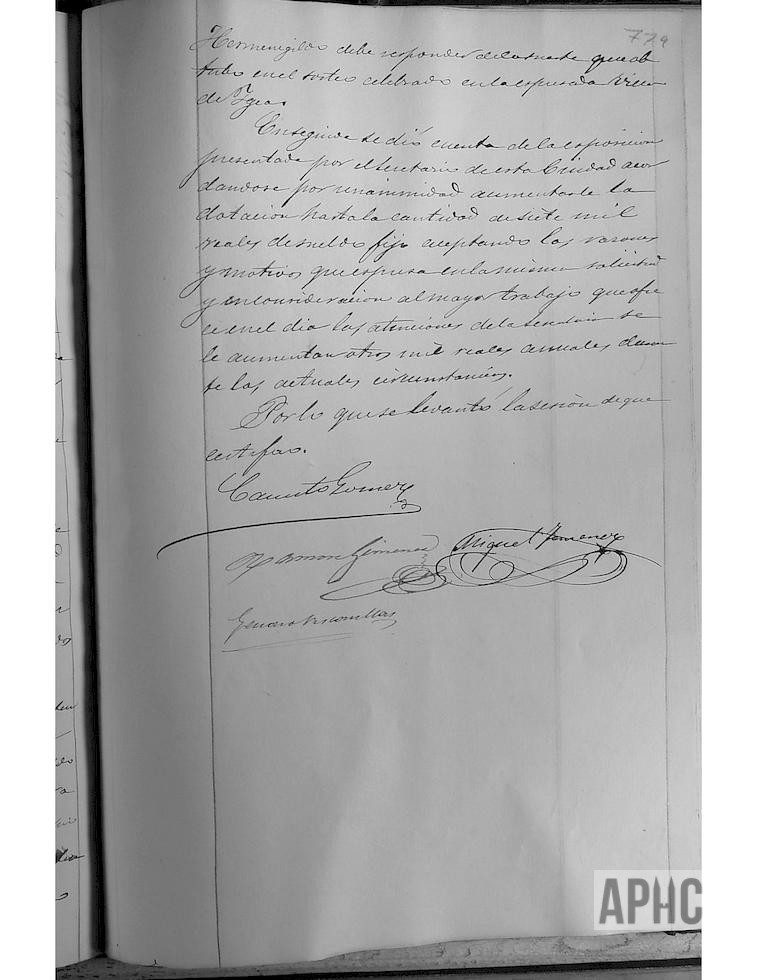 779
Hermenigildo debe responder de la suerte que ob
tubo en el sorteo celebrado en la espresada villa
de Ygea.
Enseguida se dió cuenta de la esposicion
presentada por el Secretario de esta Ciudad acor
dandose por unanimidad aumentarle la
dotacion hasta la cantidad de siete mil
reales de sueldo fijo aceptando las razones
y motivos que espresa en la misma solicitud
y en consideracion al mayor trabajo que ofre
ce en el dia las atenciones de la secretaria se
le aumentan otros mil reales anuales duran
te las actuales circunstancias.
Por lo que se levantó la sesion de que
certifico.
Canuto Gomez
Ramon Gimenez Miguel Jimenez
Genaro
APHC